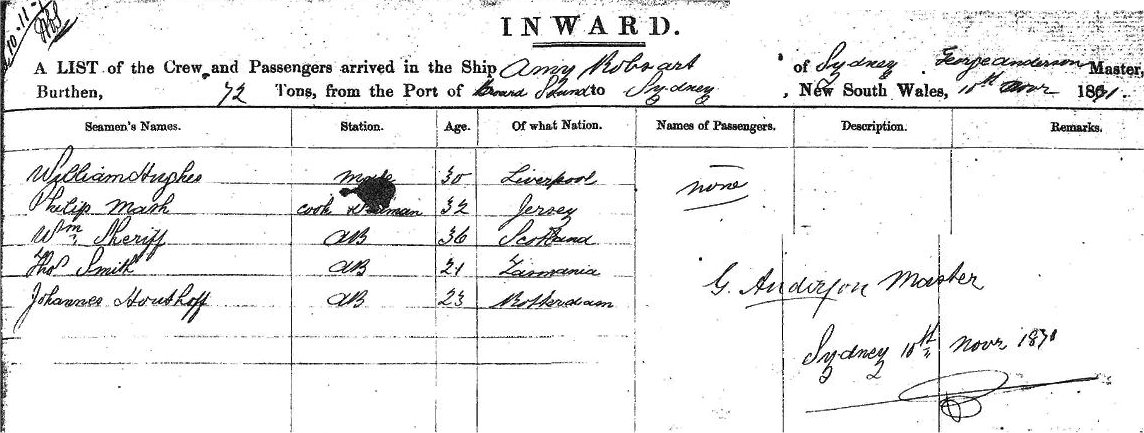 INWARD.
A LIST of the Crew and Passengers arrived in the Ship Amy Robsart of Sydney George Anderson Master,
Burthen, 72 Tons, from the Port of Broad Sound to Sydney, New South Wales, 10th Novr 1871.
Seamen's Names. Station. Age. Of what Nation. Names of Passengers. Description. Remarks.
William Hughes Mate 30 Liverpool none
Philip Mash cook & seaman 32 Jersey
Wm Sheriff AB 36 Scotland
Thos Smith AB 21 Tasmania
Johannes Houthoff AB 23 Rotterdam
G. Anderson Master
Sydney 10th Novr 1871